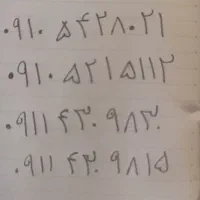 ۰۹۱۰ ۵۴۲۸۰۲۱
۰۹۱۰ ۵۲۱۵۱۱۲
۰۹۱۱ ۴۳۰ ۹۸۳۰
۰۹۱۱ ۴۳۰ ۹۸۱۵